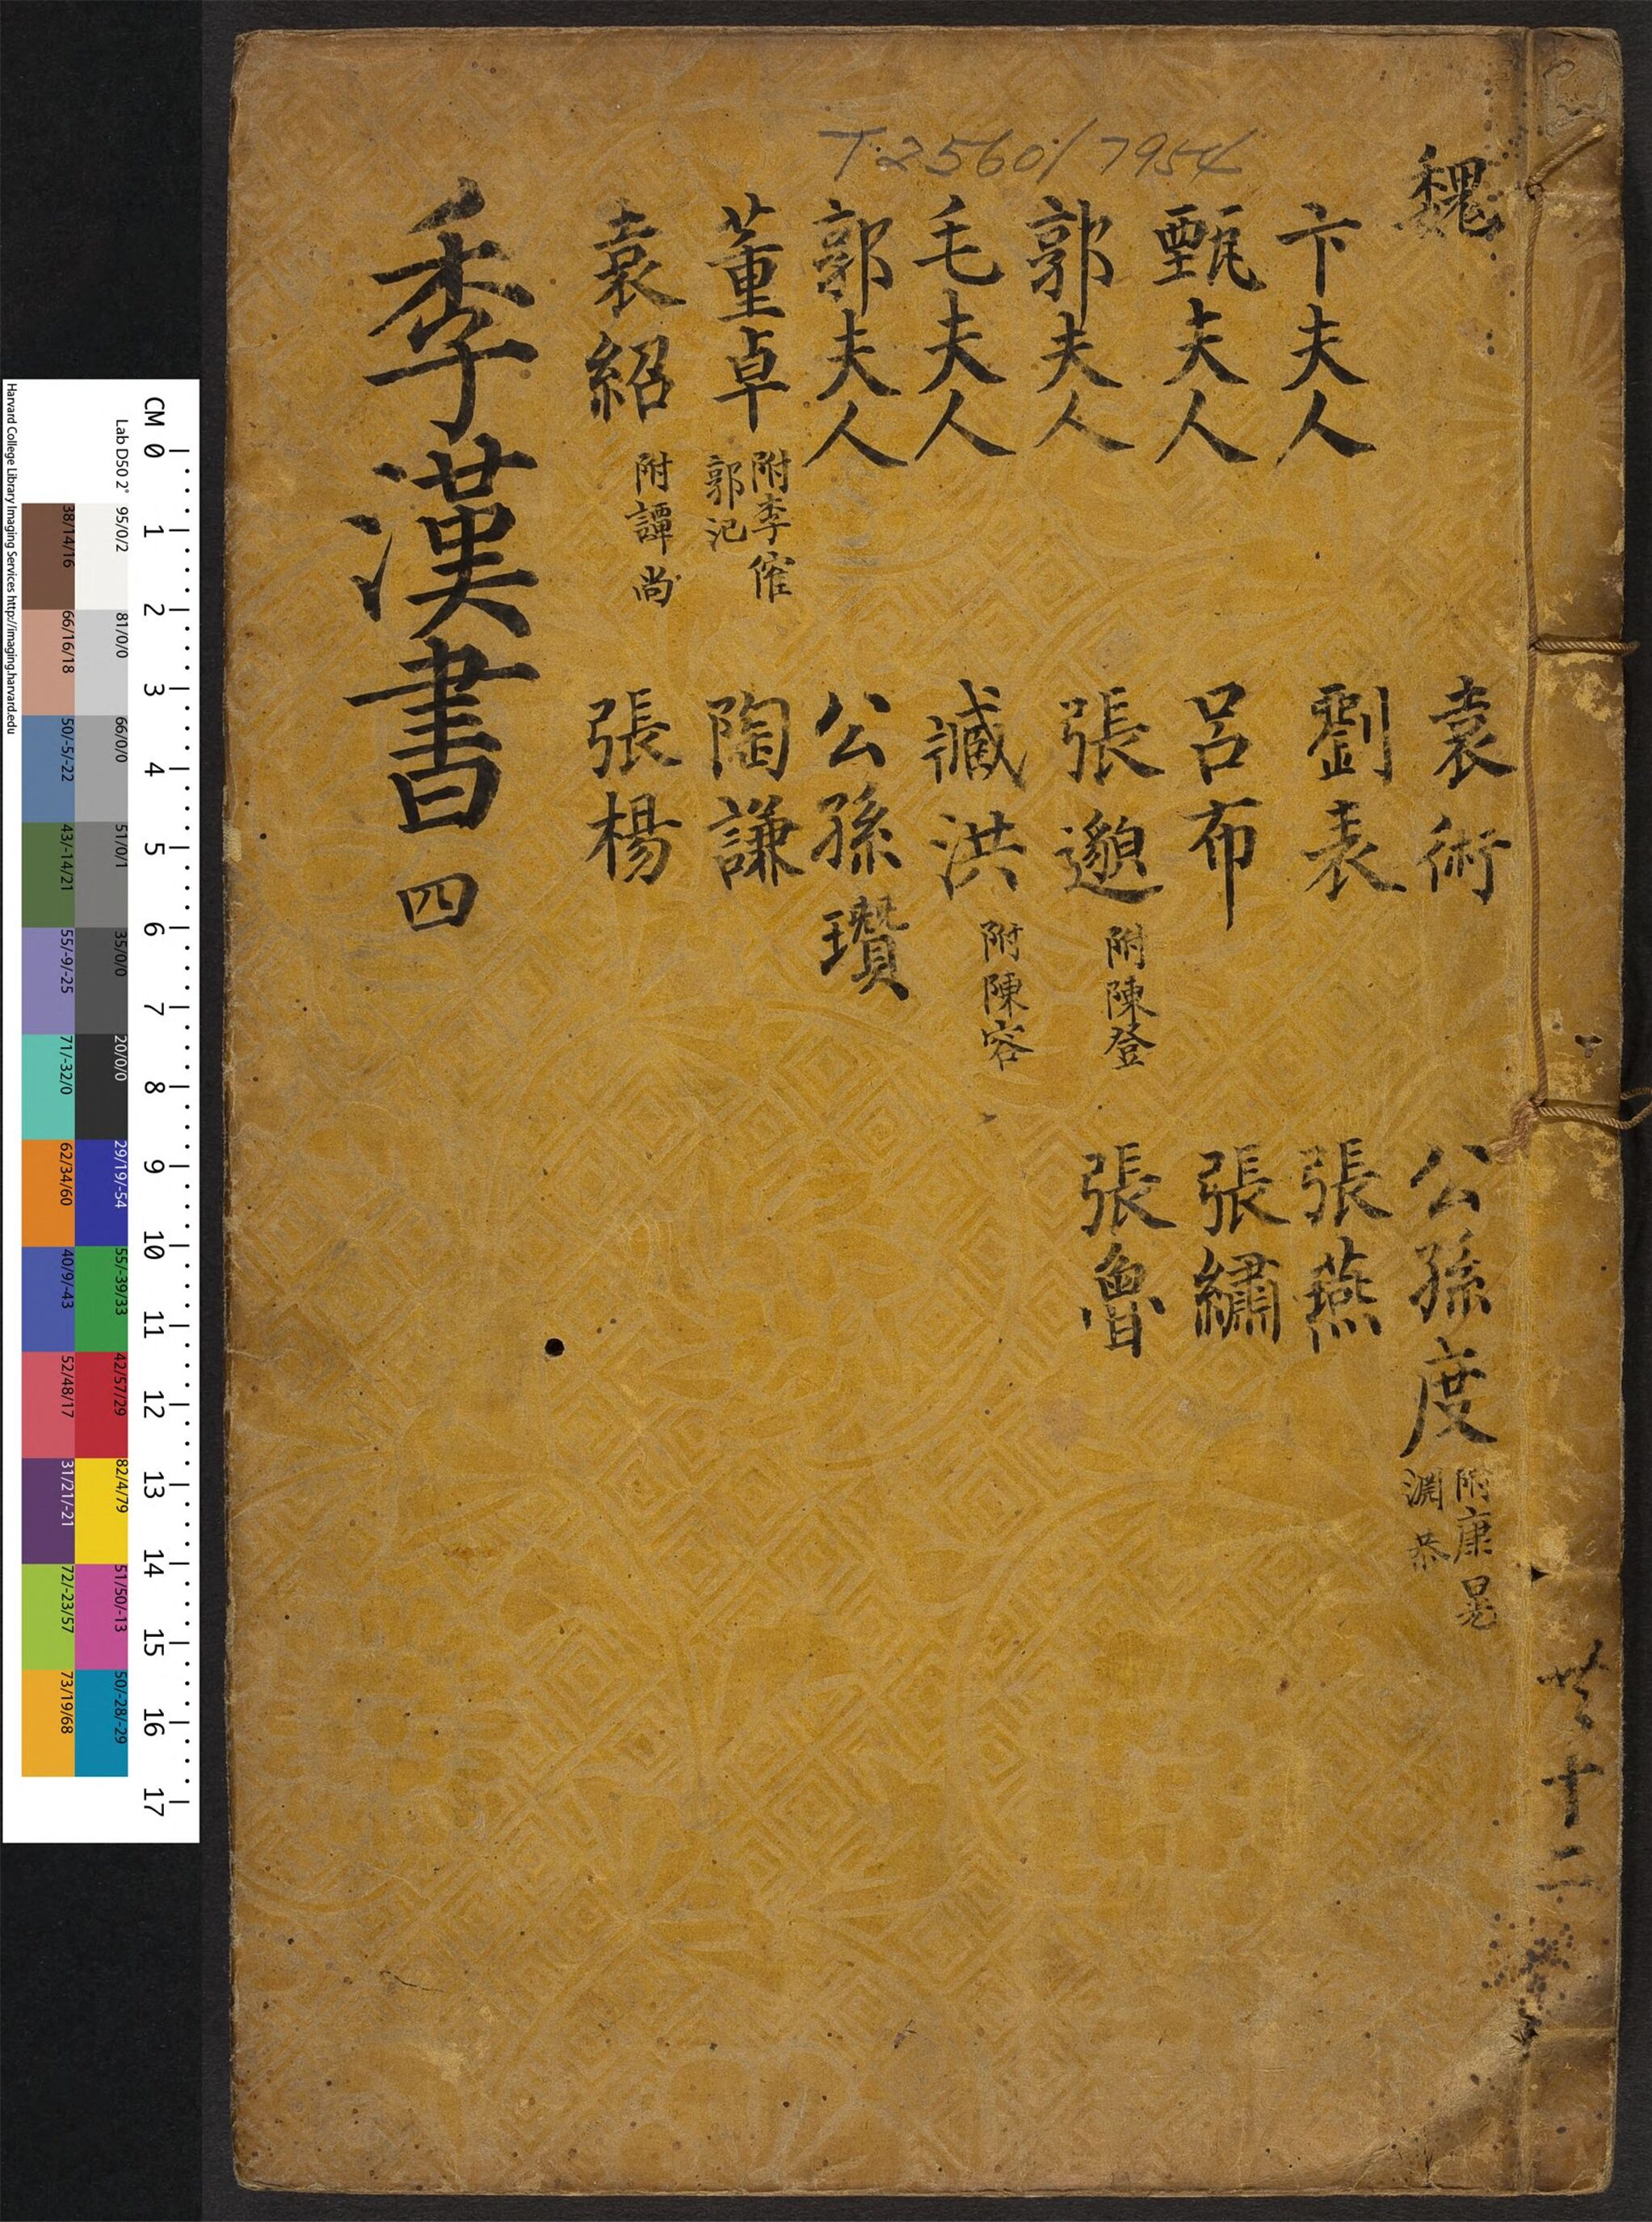 T 2560/7954
魏
卞夫人
甄夫人
郭夫人
毛夫人
郭夫人
董卓 附李傕
郭汜
袁紹 附譚尚
袁術
劉表
呂布
張邈 附陳登
臧洪 附陳容
公孫瓚
陶謙
張楊
公孫度 附康晃
淵恭
張燕
張繡
張魯
季漢書 四
共十二
CM 0 1 2 3 4 5 6 7 8 9 10 11 12 13 14 15 16 17
Lab D50 2° 95/0/2 81/0/0 66/0/0 51/0/1 35/0/0 20/0/0 29/19/-54 55/-39/33 42/57/29 82/4/79 51/50/-13 50/-28/-29
38/14/16 66/16/18 50/-5/-22 43/-14/21 55/-9/-25 71/-32/0 62/34/60 40/9/-43 52/48/17 31/21/-21 72/-23/57 73/19/68
Harvard College Library Imaging Services http://imaging.harvard.edu